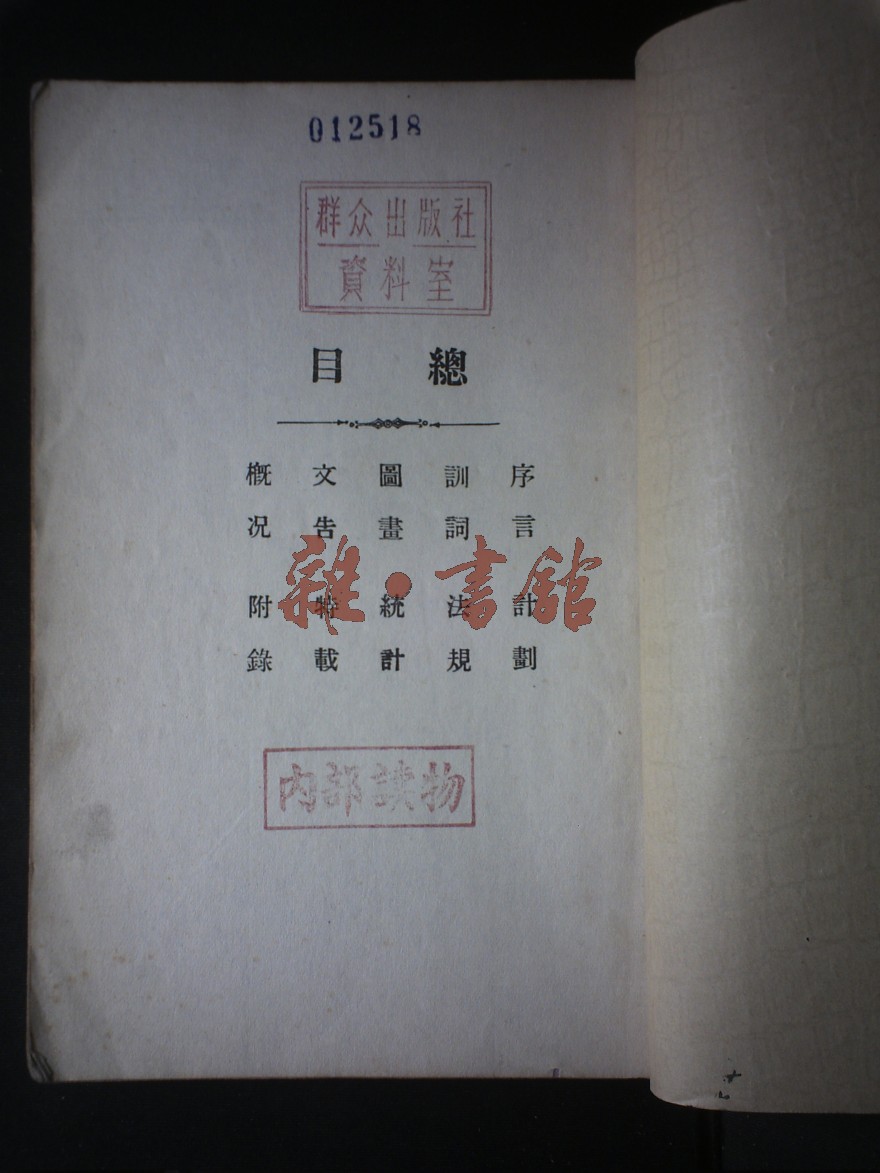 012518
群众出版社
資料室
總目
序言
訓詞
圖畫
文告
概况
計劃
法規
統計
特載
附錄
雜·書館
內部讀物